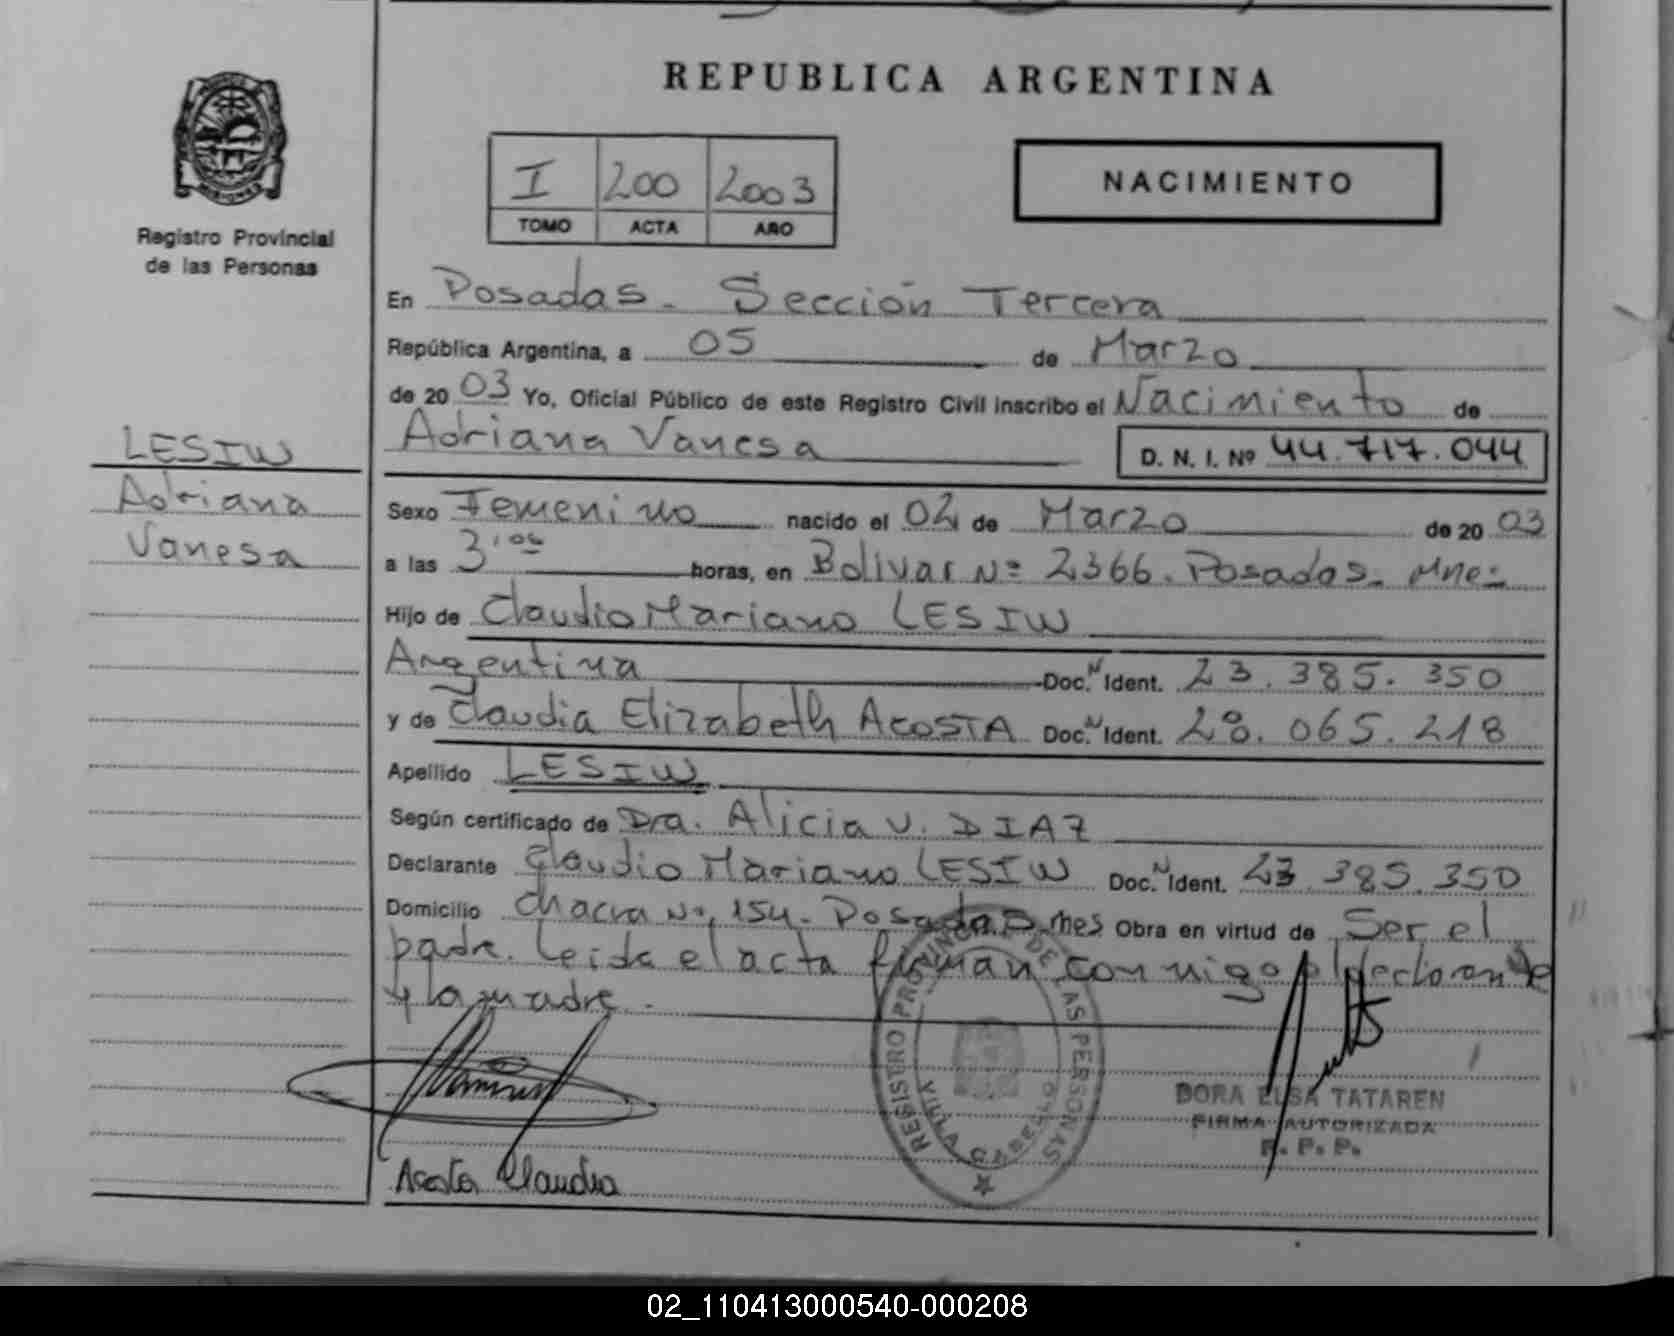 REPUBLICA ARGENTINA
I 200 2003
TOMO ACTA AÑO
NACIMIENTO
Registro Provincial
de las Personas
LESIW
Adriana
Vanesa
En Posadas - Sección Tercera
República Argentina, a 05 de Marzo
de 20 03 Yo, Oficial Público de este Registro Civil inscribo el Nacimiento de
Adriana Vanesa D. N. I. Nº 44.717.044
Sexo Femenino nacido el 02 de Marzo de 20 03
a las 3 horas, en Bolivar Nº 2366. Posadas - Mnes
Hijo de Claudio Mariano LESIW
Argentina Doc. N Ident. 23.385.350
y de Claudia Elizabeth ACOSTA Doc. N Ident. 28.065.218
Apellido LESIW
Según certificado de Dra. Alicia V. DIAZ
Declarante Claudio Mariano LESIW Doc. N Ident. 23.385.350
Domicilio Chacra Nº 154 - Posadas mnes Obra en virtud de Ser el
padre. Leida el acta firman conmigo el declarante
y la madre.
REGISTRO PROVINCIAL DE LAS PERSONAS
VILLA CABELLO
DORA ELSA TATAREN
FIRMA AUTORIZADA
R. P. P.
Acosta Claudia
02_110413000540-000208